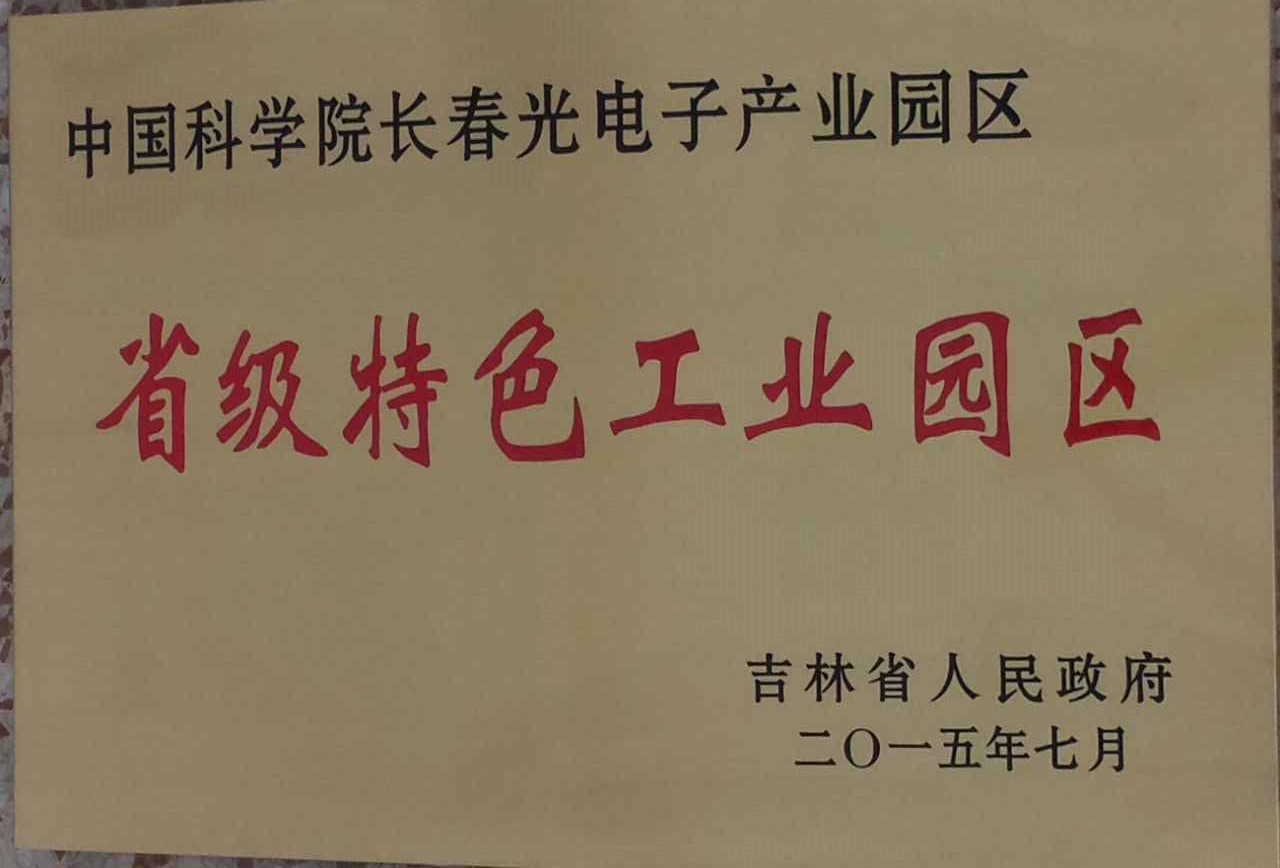 中国科学院长春光电子产业园区
省级特色工业园区
吉林省人民政府
二〇一五年七月